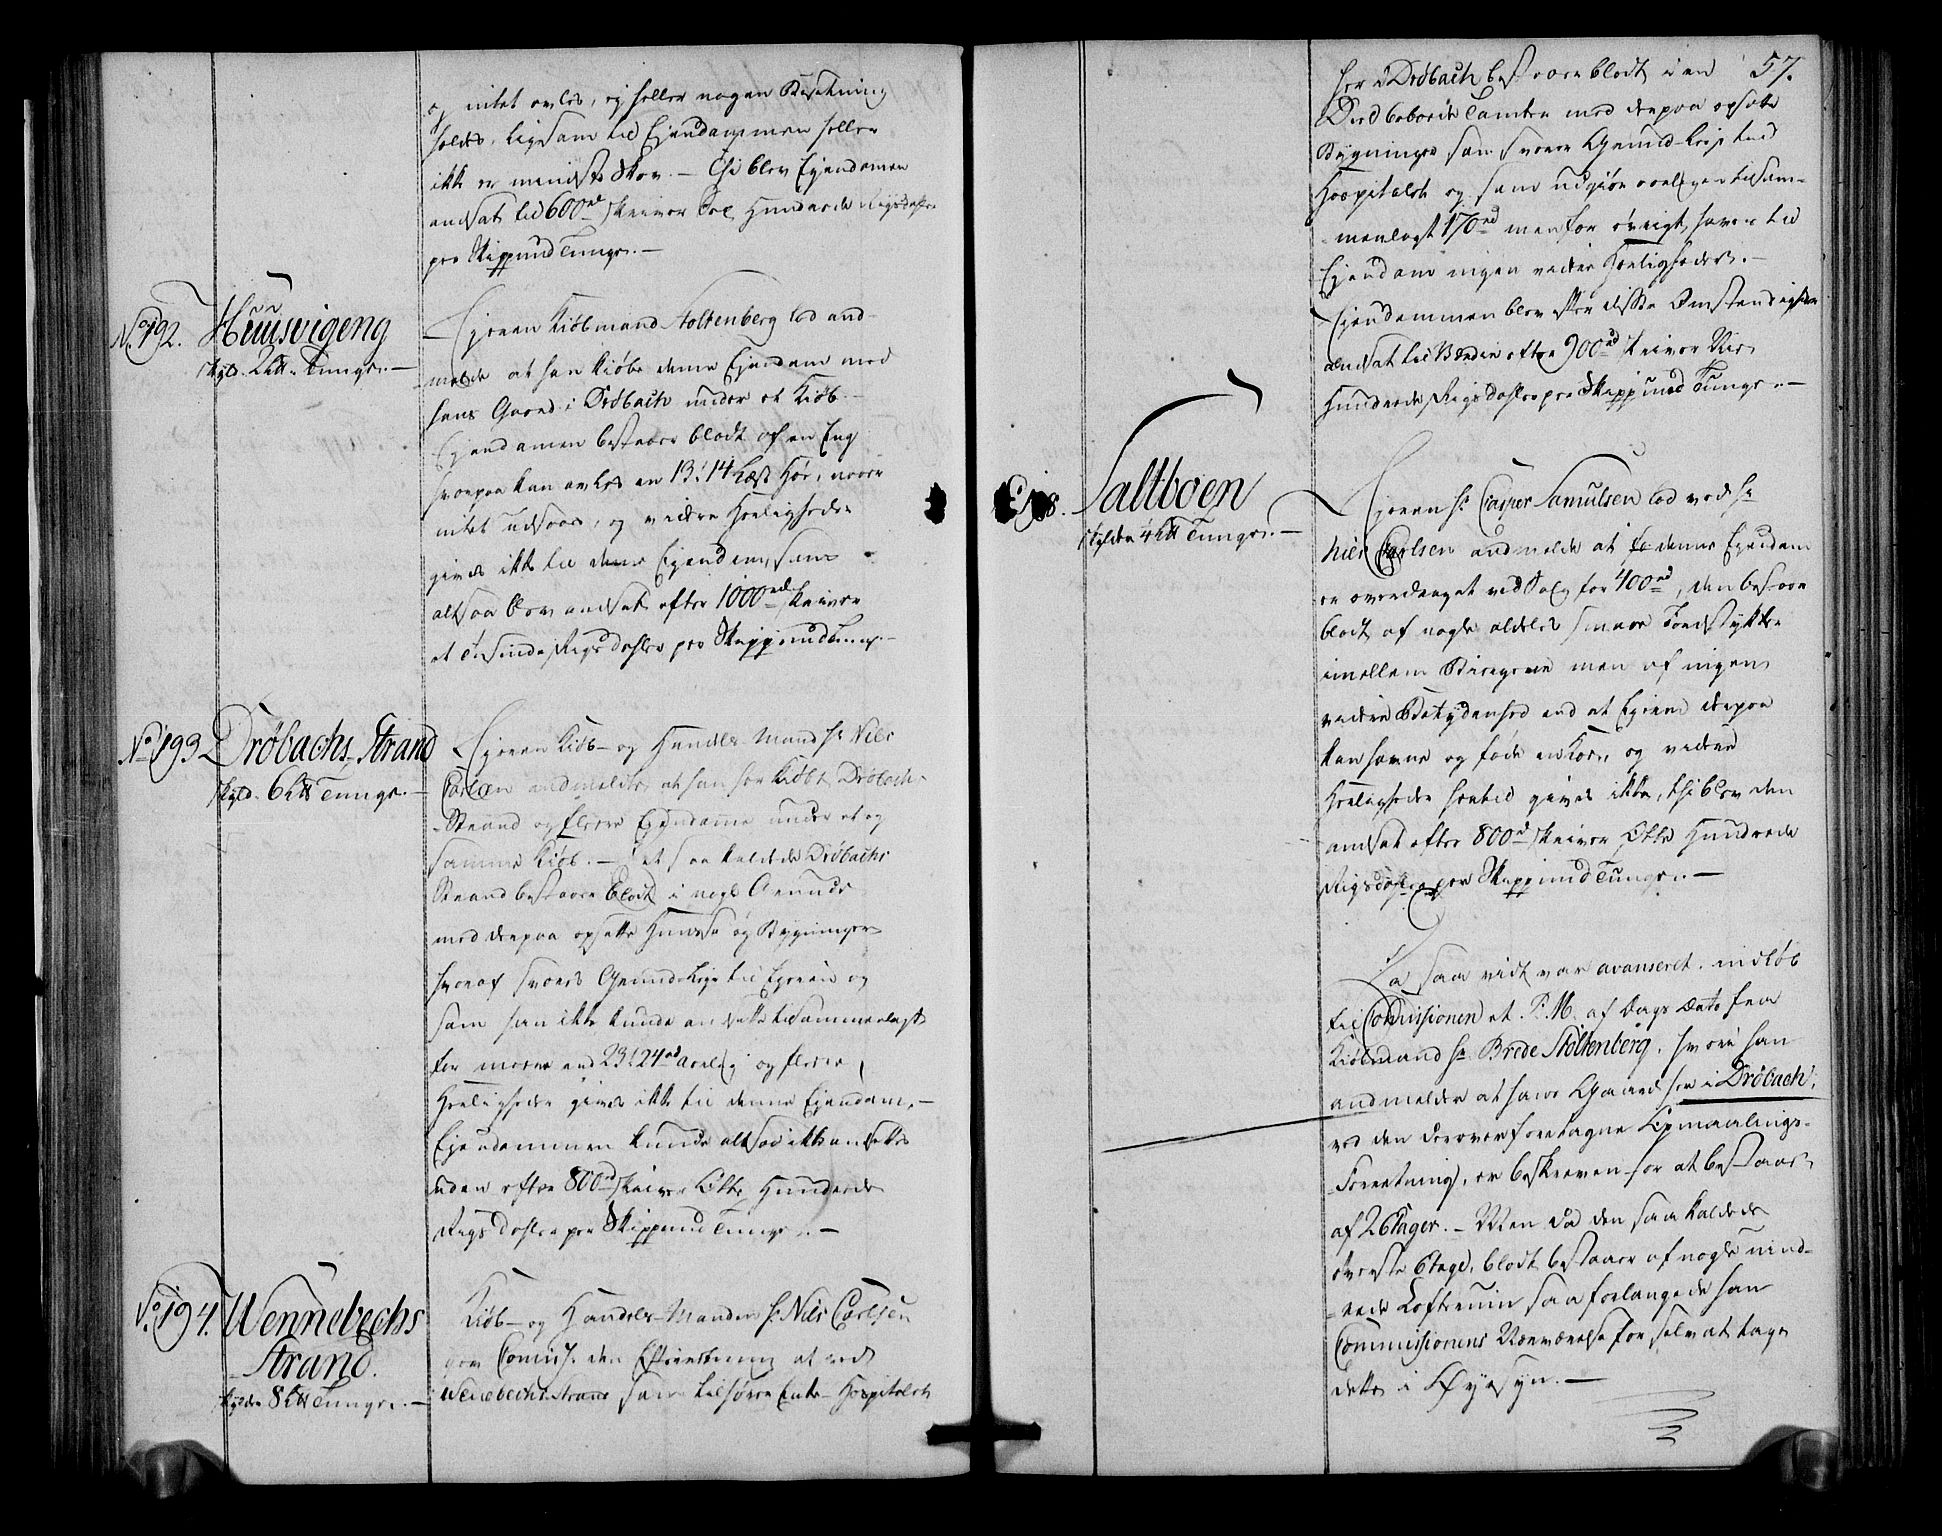 og intet avles, og heller nogen Besetning
holdes, ligesom til Ejendommen heller
ikke er mindste Skov. — Thi blev Ejendomen
andsat til 600rd skriver Sex Hundrede Rigsdaler
pro Skippund Tunge. —
No 192.
Huusvigeng
skyld. 2 L℔. Tunge. —
Ejeren Kiøbmand Stoltenberg lod and-
melde at han kiøbte denne Ejendom med
hans Gaard i Drøbach under et Kiøb. —
Ejendomen bestaaer blodt af en Eng
hvorpaa kan avles en 13 à 14 Læs Høe, hvor
intet udsaaes, og videre Herligheder
gives ikke til denne Ejendom, som
altsaa blev andsat efter 1000rd skriver
et Tusinde Rigsdahler pro Skippund Tunge. —
No 193
Drøbachs Strand
skyld. 6 L℔ Tunge. —
Ejeren Kiøb- og Handels-Mand Hr Niels
Carlsen andmeldte at han har kiøbt Drøbach-
Strand og flere Ejendomme under et og
samme Kiøb. — Det saa kaldede Drøbachs
Strand bestaaer blodt i nogle Grunde
med derpaa opsatte Huuse og Bygninger
hvoraf svares Grundleje til Ejeren og
som han ikke kunde andsætte tilsammenlagt
for meere end 23 à 24rd aarlig og flere
Herligheder gives ikke til denne Ejendom, —
Ejendommen kunde altsaa ikke ansættes
uden efter 800rd skriver Otte Hundrede
Rigsdahler pro Skippund Tunge. —
No 194.
Wennebechs
Strand.
skylder 8 L℔ Tunge. —
Kiøb- og Handels-Manden Hr Niels Carlsen
gav Comiss. den Efterretning at ved
Wennebechs Strand som tilhører Enke-Hospitalet
57.
her i Drøbach bestaaer blodt i en
Deel beboede Tomter med derpaa opsatte
Bygninger som svarer Grund-Leje til
Hospitalet og som udgiør aarligen tilsam-
menlagt 170rd men for øvrigt haver til
Ejendom ingen videre Herligheder. —
Ejendommen blev efter disse Omstendigheder
andsat til Værdie efter 900rd skriver Nie
Hundrede Rigsdahler pro Skippund Tunge. —
Saltboen
skylder 4 L℔ Tunge. —
Ejeren Hr Casper Samulsen lod ved Hr
Niels Carlsen andmelde at denne Ejendom
er overdraget ved Salg for 400rd, den bestaaer
blodt af nogle aldeles smaae Jordstykker
imellem Biergene men af ingen
videre Betydenhed end at Ejeren derpaa
kan havne og føde en Koe, og videre
Herligheder hertil gives ikke, thi blev den
andsat efter 800rd skriver Otte Hundrede
Rigsdahler pro Skippund Tunge. —
Da saa vidt var avanseret, indløb
til Commissionen et P: M. af Dags Dato fra
Kiøbmand Hr Brede Stoltenberg, hvori han
andmelder at hans Gaard her i Drøbach,
ved den derover foretagne Opmaalings-
Forretning, er beskreven for at bestaae
af 2 Etager. — Men da den saa kaldede
øverste Etage, blodt bestaaer af nogle ind-
rede Loftrum saa forlangede han
Commissionens Nærværelse for selv at tage
dette i Øyesyn. —